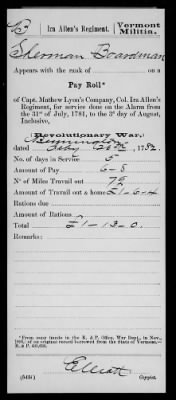 B
Ira Allen's Regiment.
Vermont
Militia.
Sherman Boardman
Appears with the rank of on a
Pay Roll*
of Capt. Mathew Lyon's Company, Col. Ira Allen's
Regiment, for service done on the Alarm from
the 31st of July, 1781, to the 3d day of August,
Inclusive,
(Revolutionary War,)
dated Bennington 1782.
No. of days in Service 5
Amount of Pay 6-8
No of Miles Travail out 79
Amount of Travail out & home £1-6-4
Rations due
Amount of Rations
Total £1-13-0.
Remarks:
*From rolls made in the R. & P. Office, War Dept., in Nov.,
of an original record borrowed from the State of Vermont.—
R. & P.
Elliott
Copyist.